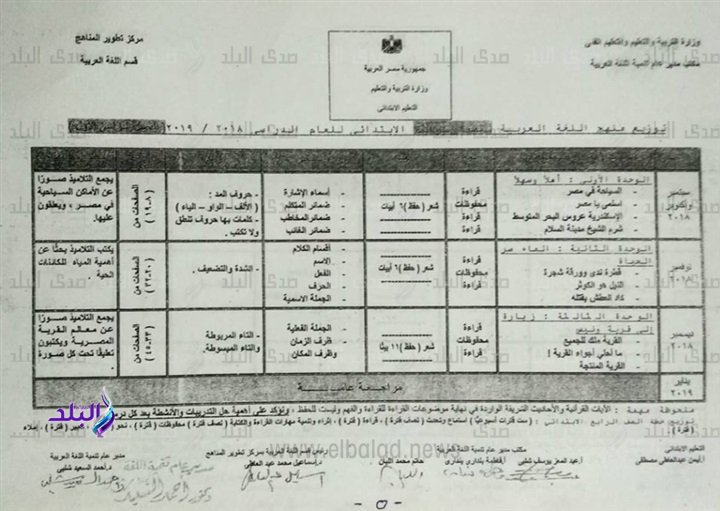 وزارة التربية والتعليم والتعليم الفنى
مكتب مدير عام تنمية اللغة العربية
جمهورية مصر العربية
وزارة التربية والتعليم
التعليم الابتدائى
مركز تطوير المناهج
قسم اللغة العربية
توزيع منهج اللغة العربية الابتدائى للعام الدراسى ٢٠١٨ / ٢٠١٩
سبتمبر
وأكتوبر
٢٠١٨
الوحدة الأولى : أهلاً وسهلاً
- السياحة في مصر
- اسلمي يا مصر
- الإسكندرية عروس البحر المتوسط
- شرم الشيخ مدينة السلام
قراءة
محفوظات
قراءة
قراءة
شعر ( حفظ ) ٦ أبيات
- أسماء الإشارة
- ضمائر المتكلم
- ضمائر المخاطب
- ضمائر الغائب
- حروف المد :
( الألف – الواو – الياء )
- كلمات بها حروف تنطق
ولا تكتب .
الصفحات من
( ٨-١٩ )
يجمع التلاميذ صورًا
عن الأماكن السياحية
في مصر ، ويعلقون
عليها.
نوفمبر
٢٠١٨
الوحدة الثانية : الماء سر
الحياة
- قطرة ندى وورقة شجرة
- النيل هو الكوثر
- كاد العطش يقتله
قراءة
محفوظات
قراءة
شعر ( حفظ ) ٦ أبيات
- أقسام الكلام
- الاسم
- الفعل
- الحرف
- الجملة الاسمية
- الشدة والتضعيف .
الصفحات من
( ٢٠-٣٢ )
يكتب التلاميذ بحثًا عن
أهمية المياه للكائنات
الحية .
ديسمبر
٢٠١٨
الوحدة الثالثة : زيارة
إلى قرية
- القرية ملك للجميع
- ما أحلي أجواء القرية !
- القرية المنتجة
قراءة
محفوظات
قراءة
شعر ( حفظ ) ١١ بيتًا
- الجملة الفعلية
- ظرف الزمان
وظرف المكان
- التاء المربوطة
والتاء المبسوطة.
الصفحات من
( ٣٣-٤٥ )
يجمع التلاميذ صورًا
عن معالم القرية
المصرية ويكتبون
تعليقًا تحت كل صورة
يناير
٢٠١٩
مراجعة عامة
ملحوظة مهمة : الآيات القرآنية والأحاديث الشريفة الواردة في نهاية موضوعات القراءة للقراءة والفهم وليست للحفظ ، ونؤكد على أهمية حل التدريبات والأنشطة بعد كل درس
توزيع خطة الصف الرابع الابتدائى : ( ست فترات أسبوعيًا ) استماع وتحدث ( نصف فترة ) قراءة ( فترة ) ، إثراء وتنمية مهارات القراءة والكتابة ( نصف فترة ) محفوظات ( فترة ) ، نحو ( فترة ) ، تعبير ( فترة ) ، إملاء
( فترة ) .
التعليم الابتدائى
أيمن عبدالعاطي مصطفى
مكتب مدير عام تنمية اللغة العربية
أ.عبد المعز يوسف شلبى
حاتم محمد
رئيس قسم اللغة العربية بمركز تطوير المناهج
د.إسماعيل محمد عبد العاطى
مدير عام تنمية اللغة العربية
د.أحمد السعيد شلبى
- ٥ -
صدى البلد
www.elbalad.news